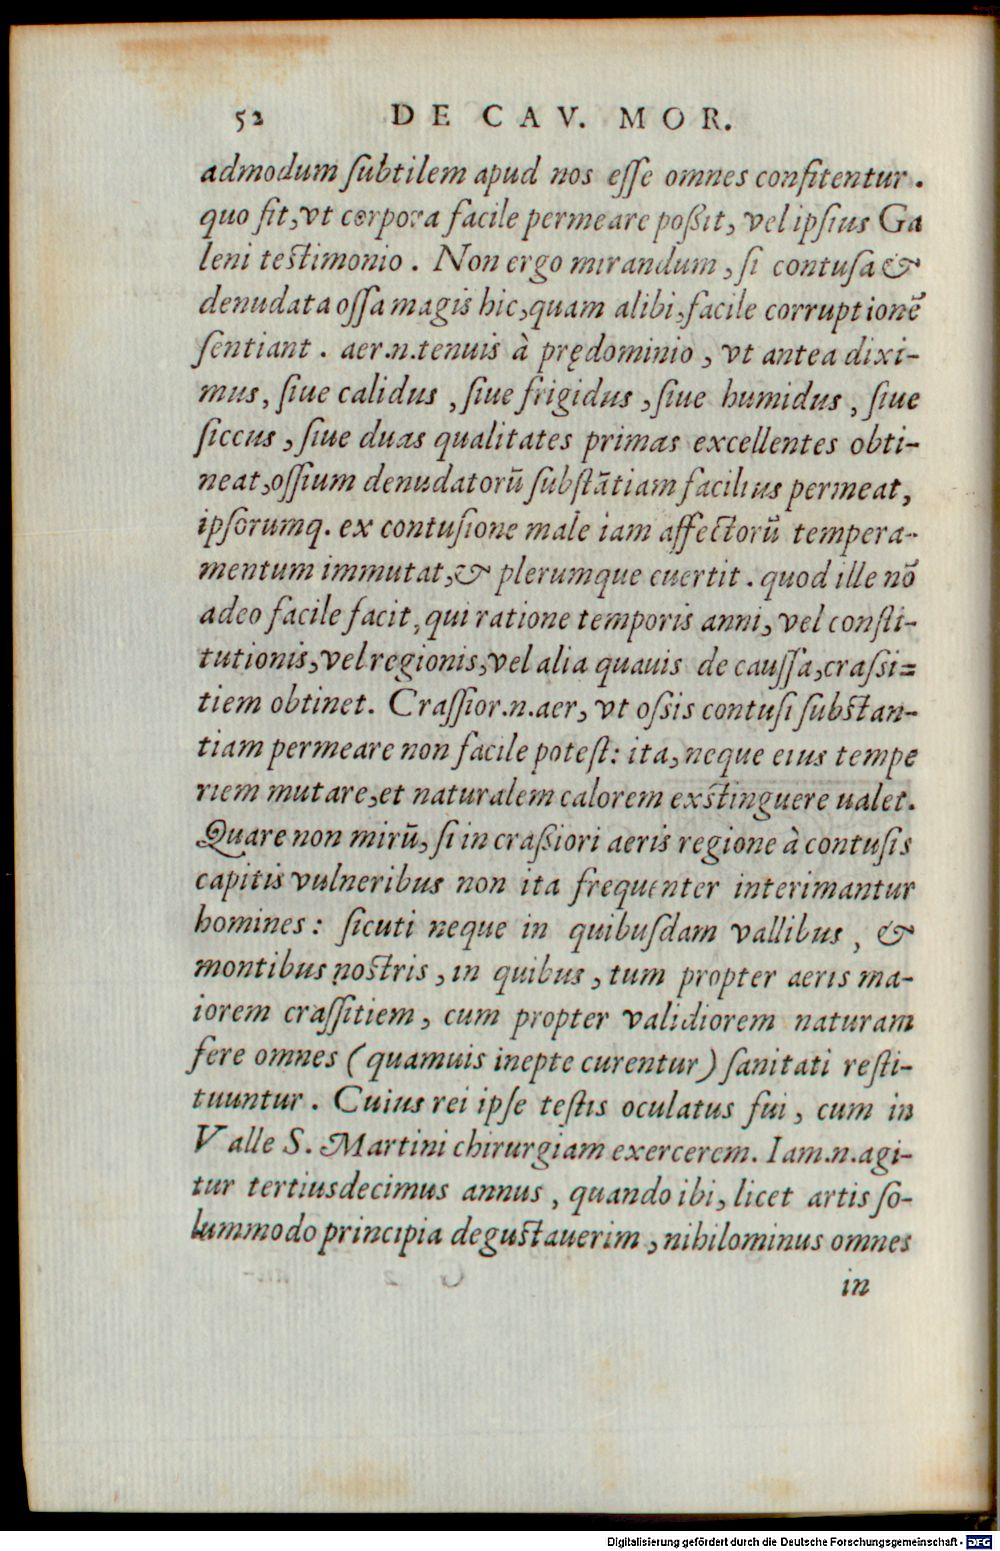 52 DE CAV. MOR.
admodum ſubtilem apud nos eſſe omnes confitentur.
quo fit, vt corpora facile permeare poßit, vel ipſius Ga
leni testimonio. Non ergo mirandum, ſi contuſa &
denudata oſſa magis hic, quam alibi, facile corruptionē
ſentiant. aer.n.tenuis à prędominio, vt antea dixi-
mus, ſiue calidus, ſiue frigidus, ſiue humidus, ſiue
ſiccus, ſiue duas qualitates primas excellentes obti-
neat, oſſium denudatorū ſubſtātiam facilius permeat,
ipſorumq. ex contuſione male iam affectorū tempera-
mentum immutat, & plerumque euertit. quod ille nō
adeo facile facit, qui ratione temporis anni, vel conſti-
tutionis, vel regionis, vel alia quauis de cauſſa, craſsi=
tiem obtinet. Craſſior.n.aer, vt oſsis contuſi ſubstan-
tiam permeare non facile poteſt: ita, neque eius tempe
riem mutare, et naturalem calorem exstinguere ualet.
Quare non mirū, ſi in craßiori aeris regione à contuſis
capitis vulneribus non ita frequenter interimantur
homines: ſicuti neque in quibuſdam vallibus, &
montibus nostris, in quibus, tum propter aeris ma-
iorem craſſitiem, cum propter validiorem naturam
fere omnes (quamuis inepte curentur) ſanitati reſti-
tuuntur. Cuius rei ipſe teſtis oculatus fui, cum in
Valle S. Martini chirurgiam exercerem. Iam.n.agi-
tur tertiusdecimus annus, quando ibi, licet artis ſo-
lummodo principia degustauerim, nihilominus omnes
in
Digitalisierung gefördert durch die Deutsche Forschungsgemeinschaft - DFG